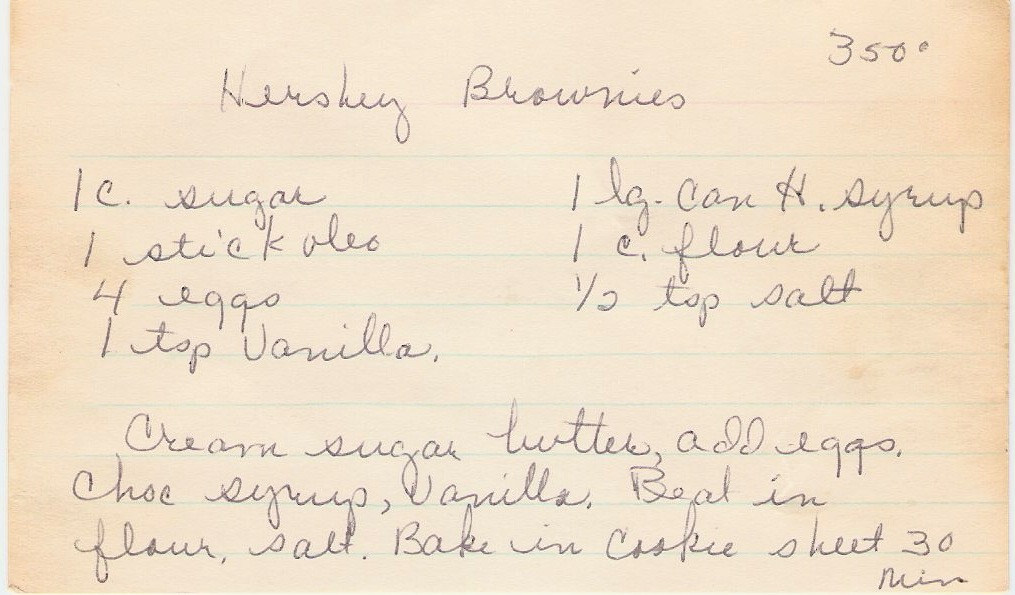 350°
Hershey Brownies
1 c. sugar
1 lg. can H. syrup
1 stick oleo
1 c. flour
4 eggs
1/2 tsp salt
1 tsp Vanilla.
Cream sugar butter, add eggs.
Choc syrup, Vanilla. Beat in
flour, salt. Bake in Cookie sheet 30
min